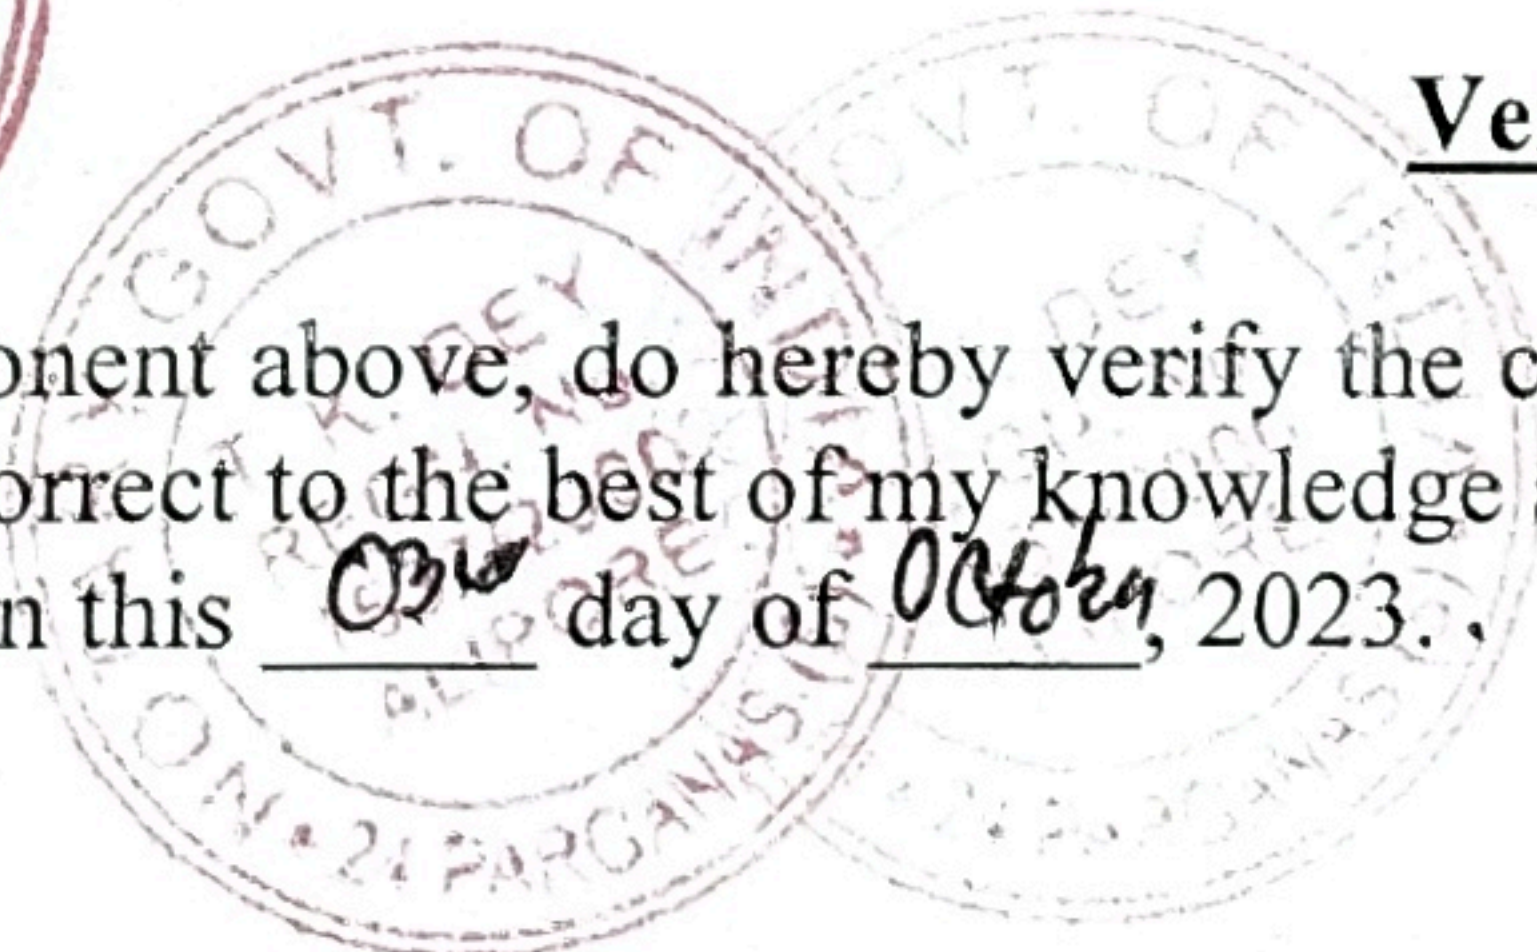 Ve
onent above, do hereby verify the c
orrect to the best of my knowledge
n this 03rd day of October, 2023. .
GOVT. OF INDIA
DEY
24 PARGANAS
GOVT. OF INDIA
DEY
24 PARGANAS